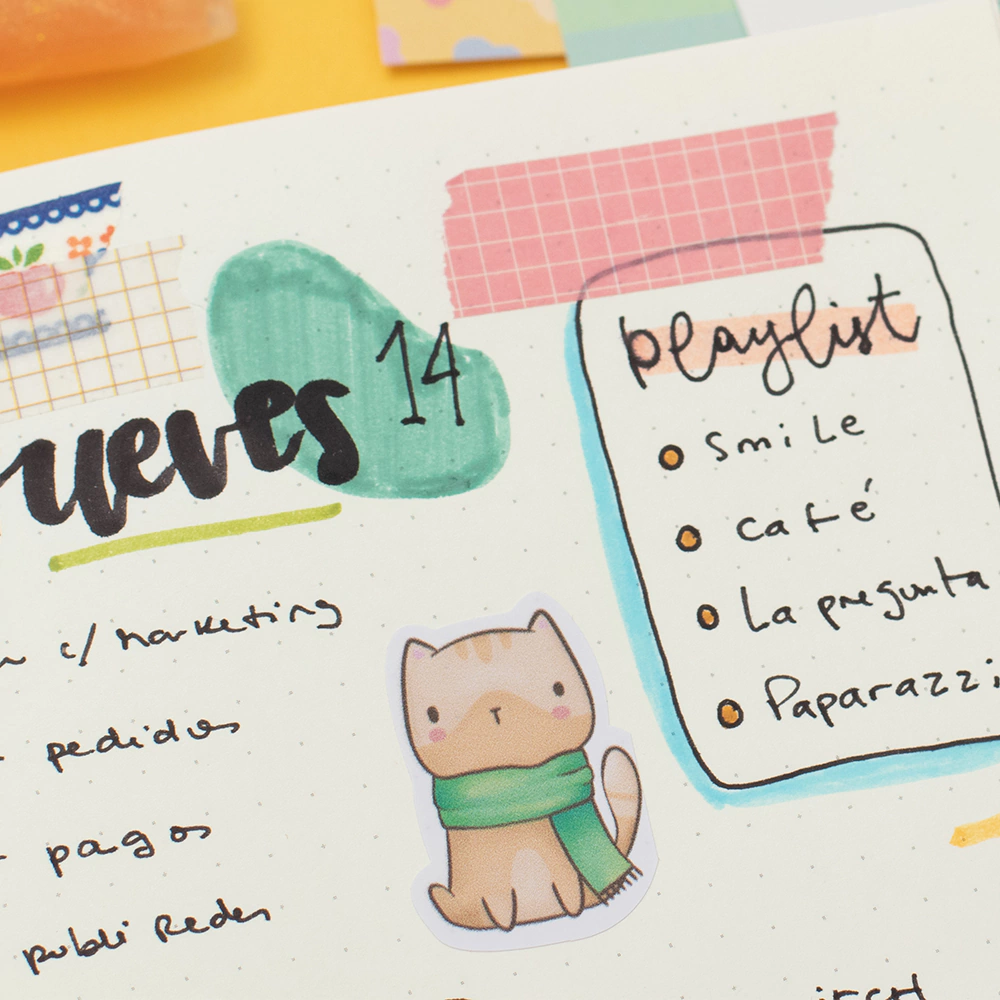 ueves 14
c/ marketing
pedidos
pagos
publi Redes
playlist
Smile
Café
La pregunta
Paparazzi